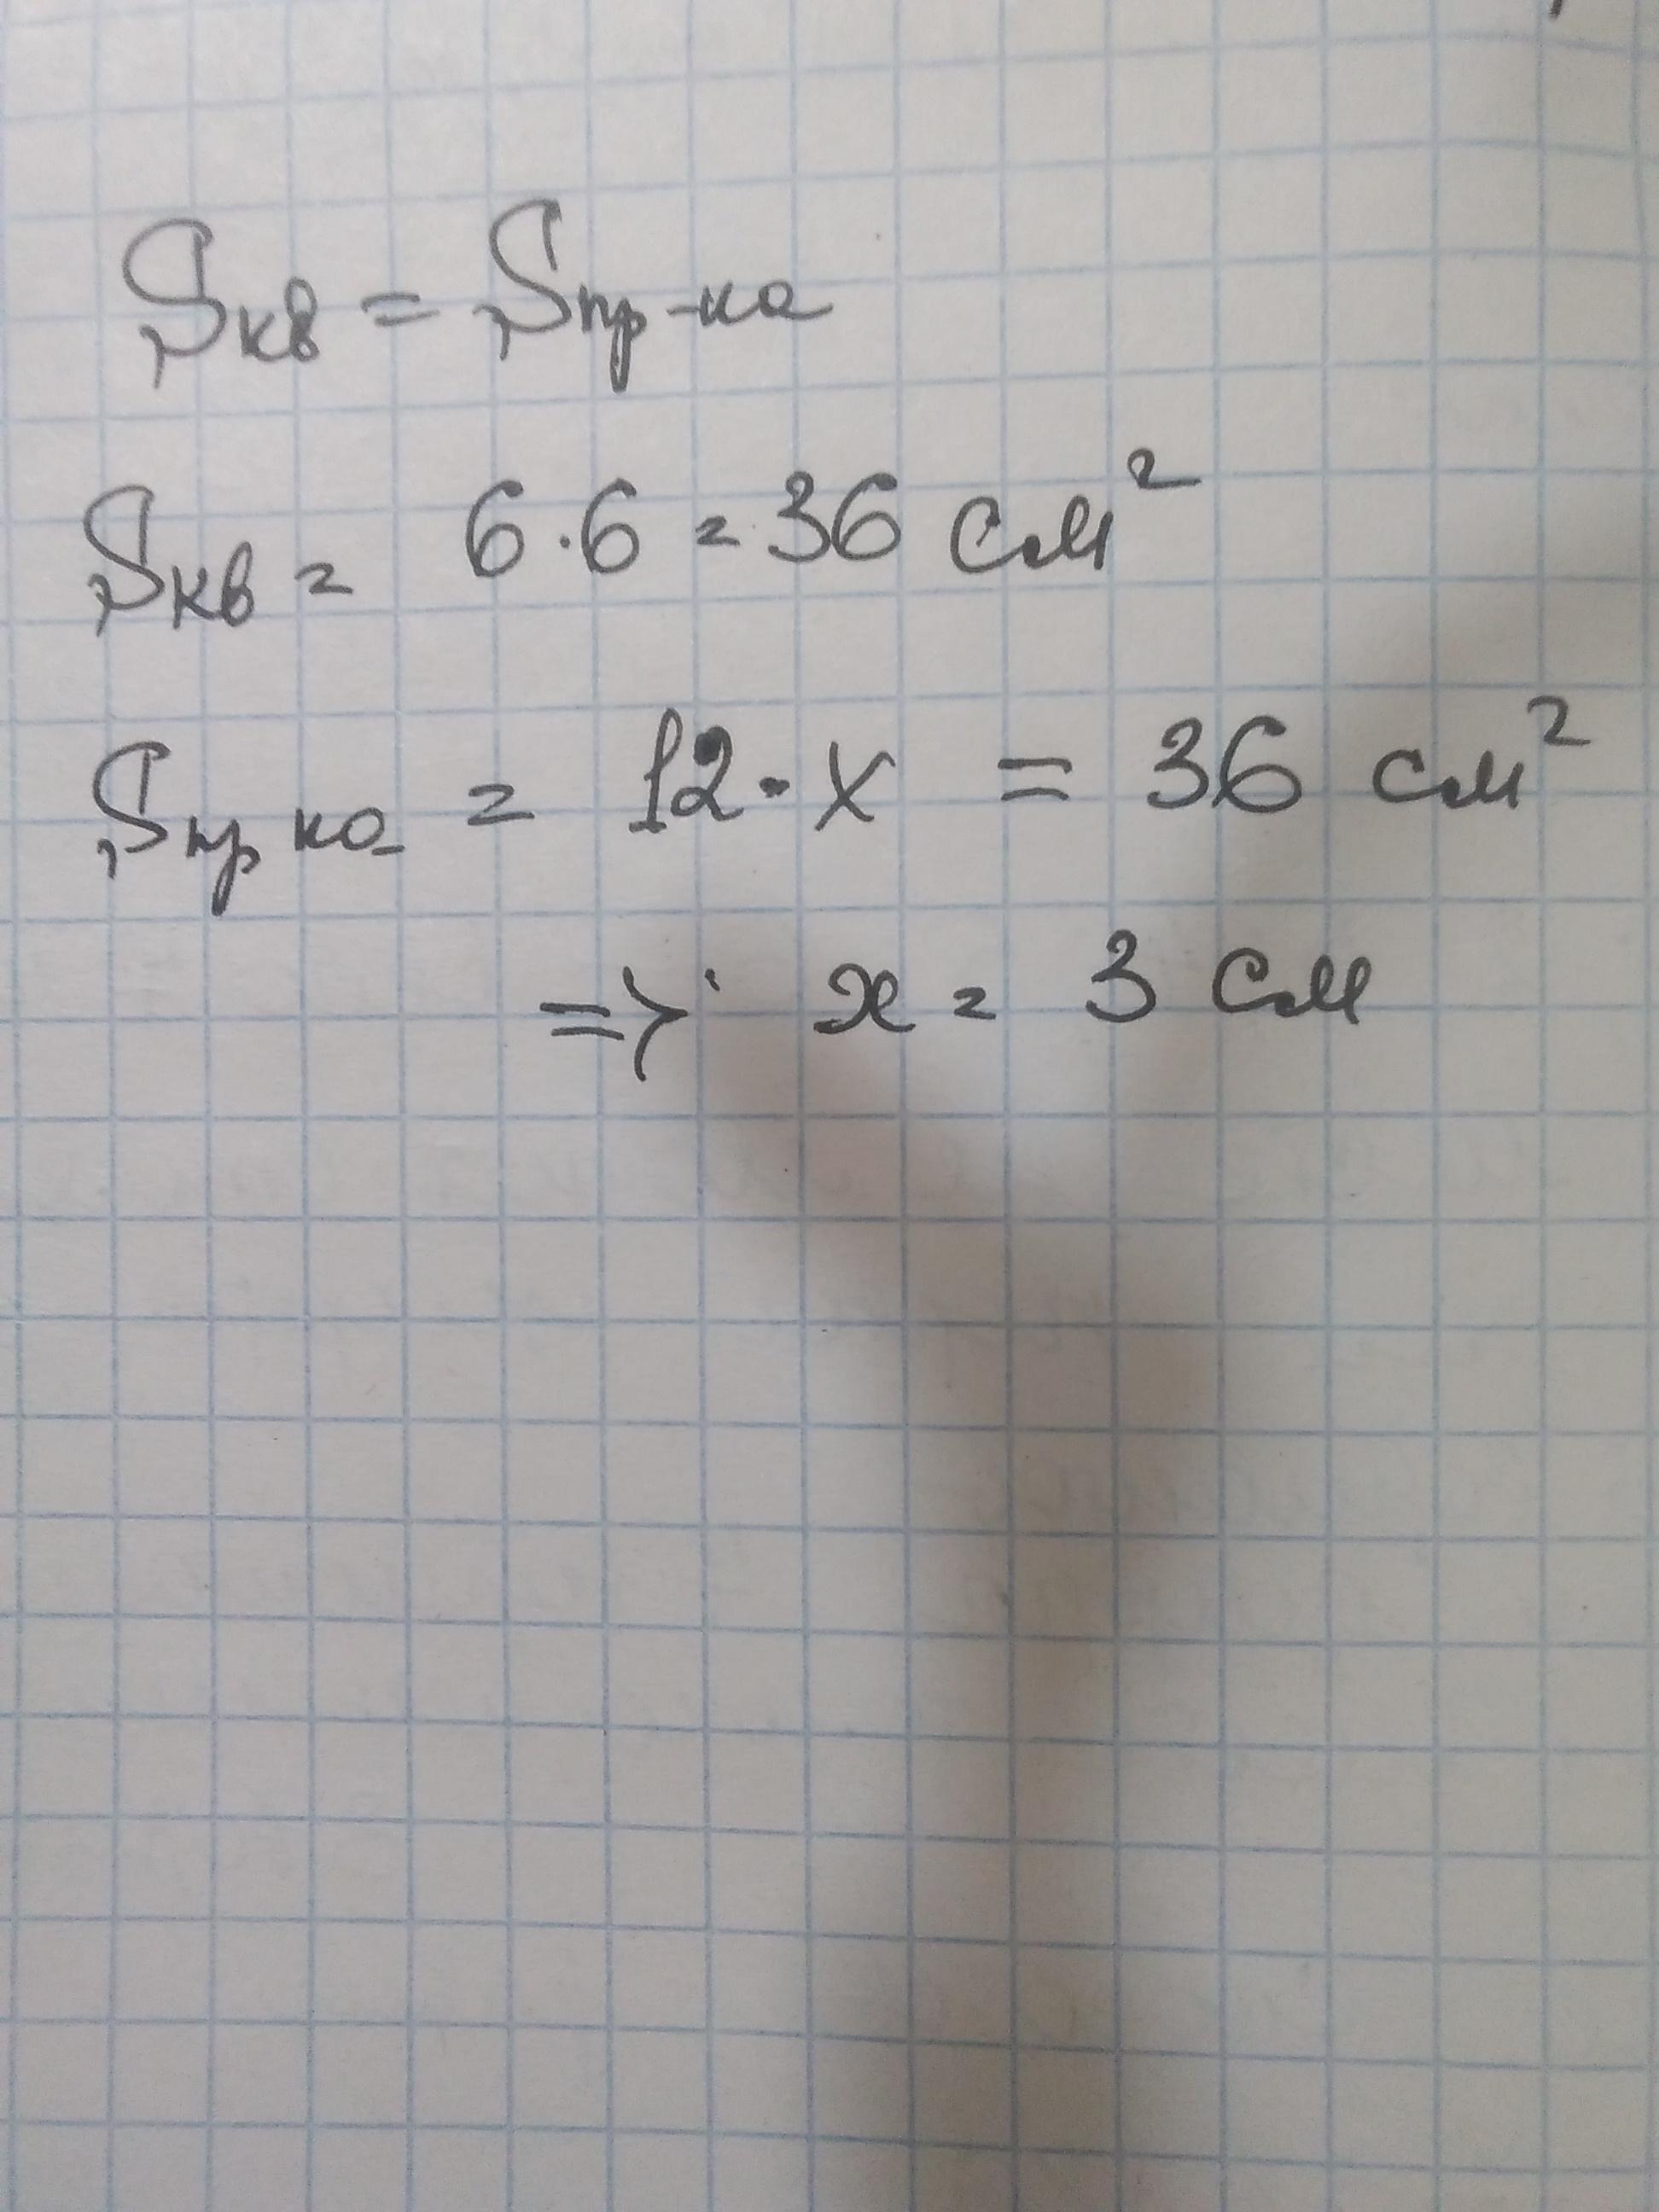 Sкв = Sпр-ка
Sкв = 6·6 = 36 см²
Sпр ка = 12·x = 36 см²
=> x = 3 см